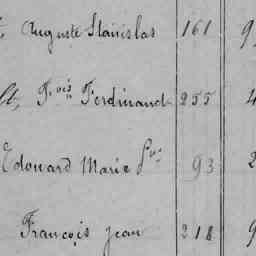 Auguste Stanislas 161 9
Fois Ferdinand 255 4
Edouard Marie 93 2
François Jean 218 9